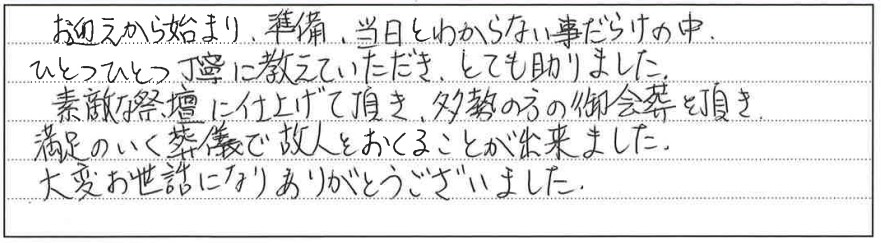 お迎えから始まり、準備、当日とわからない事だらけの中、
ひとつひとつ丁寧に教えていただき、とても助りました。
素敵な祭壇に仕上げて頂き、多勢の方の御会葬を頂き、
満足のいく葬儀で故人をおくることが出来ました。
大変お世話になりありがとうございました。